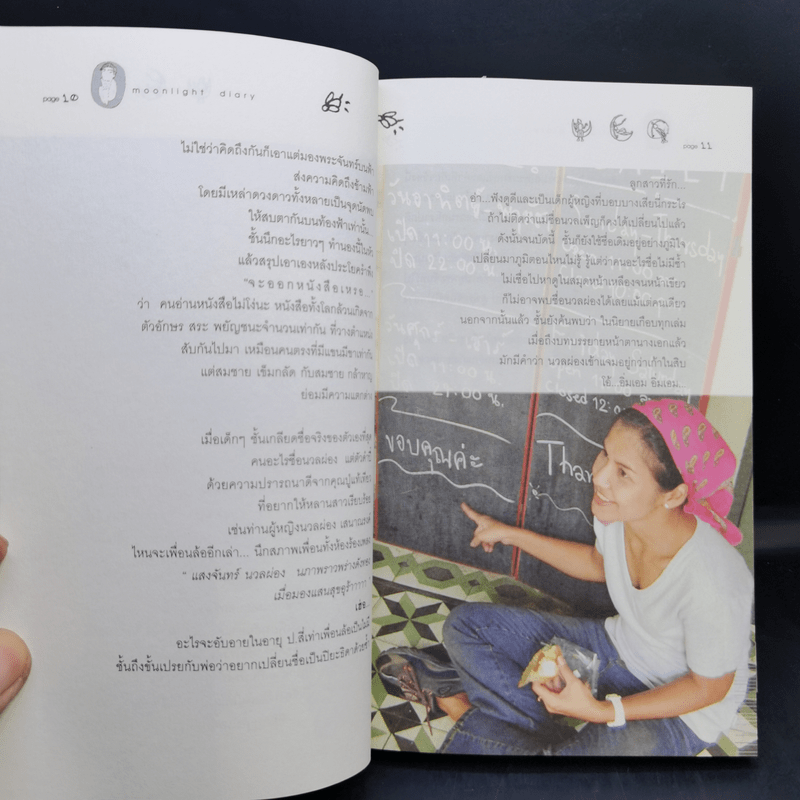 page 10
moonlight diary
ไม่ใช่ว่าคิดถึงกันก็เอาแต่มองพระจันทร์บนฟ้า
ส่งความคิดถึงข้ามฟ้า
โดยมีเหล่าดวงดาวทั้งหลายเป็นจุดนัดพบ
ให้สบตากันบนท้องฟ้าเท่านั้น...
ชั้นนึกอะไรยาวๆ ทำนองนี้ในหัว
แล้วสรุปเอาเองหลังประโยครำพึง
"จะออกหนังสือเหรอ..."
ว่า คนอ่านหนังสือไม่โง่นะ หนังสือทั้งโลกล้วนเกิดจาก
ตัวอักษร สระ พยัญชนะจำนวนเท่ากัน ที่วางตำแหน่ง
สับกันไปมา เหมือนคนตรงที่มีแขนมีขาเท่ากัน
แต่สมชาย เข็มกลัด กับสมชาย กล้าหาญ
ย่อมมีความแตกต่าง
เมื่อเด็กๆ ชั้นเกลียดชื่อจริงของตัวเองที่สุด
คนอะไรชื่อนวลผ่อง แต่ตัวดำปี๋
ด้วยความปรารถนาดีจากคุณปู่แท้เทียว
ที่อยากให้หลานสาวเรียบร้อย
เช่นท่านผู้หญิงนวลผ่อง เสนาณรงค์
ไหนจะเพื่อนล้ออีกเล่า... นึกสภาพเพื่อนทั้งห้องร้องเพลง
" แสงจันทร์ นวลผ่อง นภาพราวพร่างดังทอง
เมื่อมองแสนสุขอุร้าาาาา "
เฮ่อ...
อะไรจะอับอายในอายุ ป.สี่เท่าเพื่อนล้อเป็นไม่มี
ชั้นถึงขั้นเปรยกับพ่อว่าอยากเปลี่ยนชื่อเป็นปิยะธิดาด้วยซ้ำ
page 11
ลูกสาวที่รัก...
อ๋า...ฟังดูดีและเป็นเด็กผู้หญิงที่บอบบางเสียนี่กระไร
ถ้าไม่ติดว่าแม่ชื่อนวลเพ็ญก็คงได้เปลี่ยนไปแล้ว
ดังนั้นจนบัดนี้ ชั้นก็ยังใช้ชื่อเดิมอยู่อย่างภูมิใจ
เปลี่ยนมาภูมิตอนไหนไม่รู้ รู้แต่ว่าคนอะไรชื่อไม่มีซ้ำ
ไม่เชื่อไปหาดูในสมุดหน้าเหลืองจนหน้าเขียว
ก็ไม่อาจพบชื่อนวลผ่องได้เลยแม้แต่คนเดียว
นอกจากนั้นแล้ว ชั้นยังค้นพบว่า ในนิยายเกือบทุกเล่ม
เมื่อถึงบทบรรยายหน้าตานางเอกแล้ว
มักมีคำว่า นวลผ่องเข้าแจมอยู่กว่าเก้าในสิบ
โอ้...อิ่มเอม อิ่มเอม...
วันอาทิตย์-
เปิด 11:00 น.
ปิด 22.00 น.
วันศุกร์-เสาร์
Closed 12:0
ขอบคุณค่ะ
Than